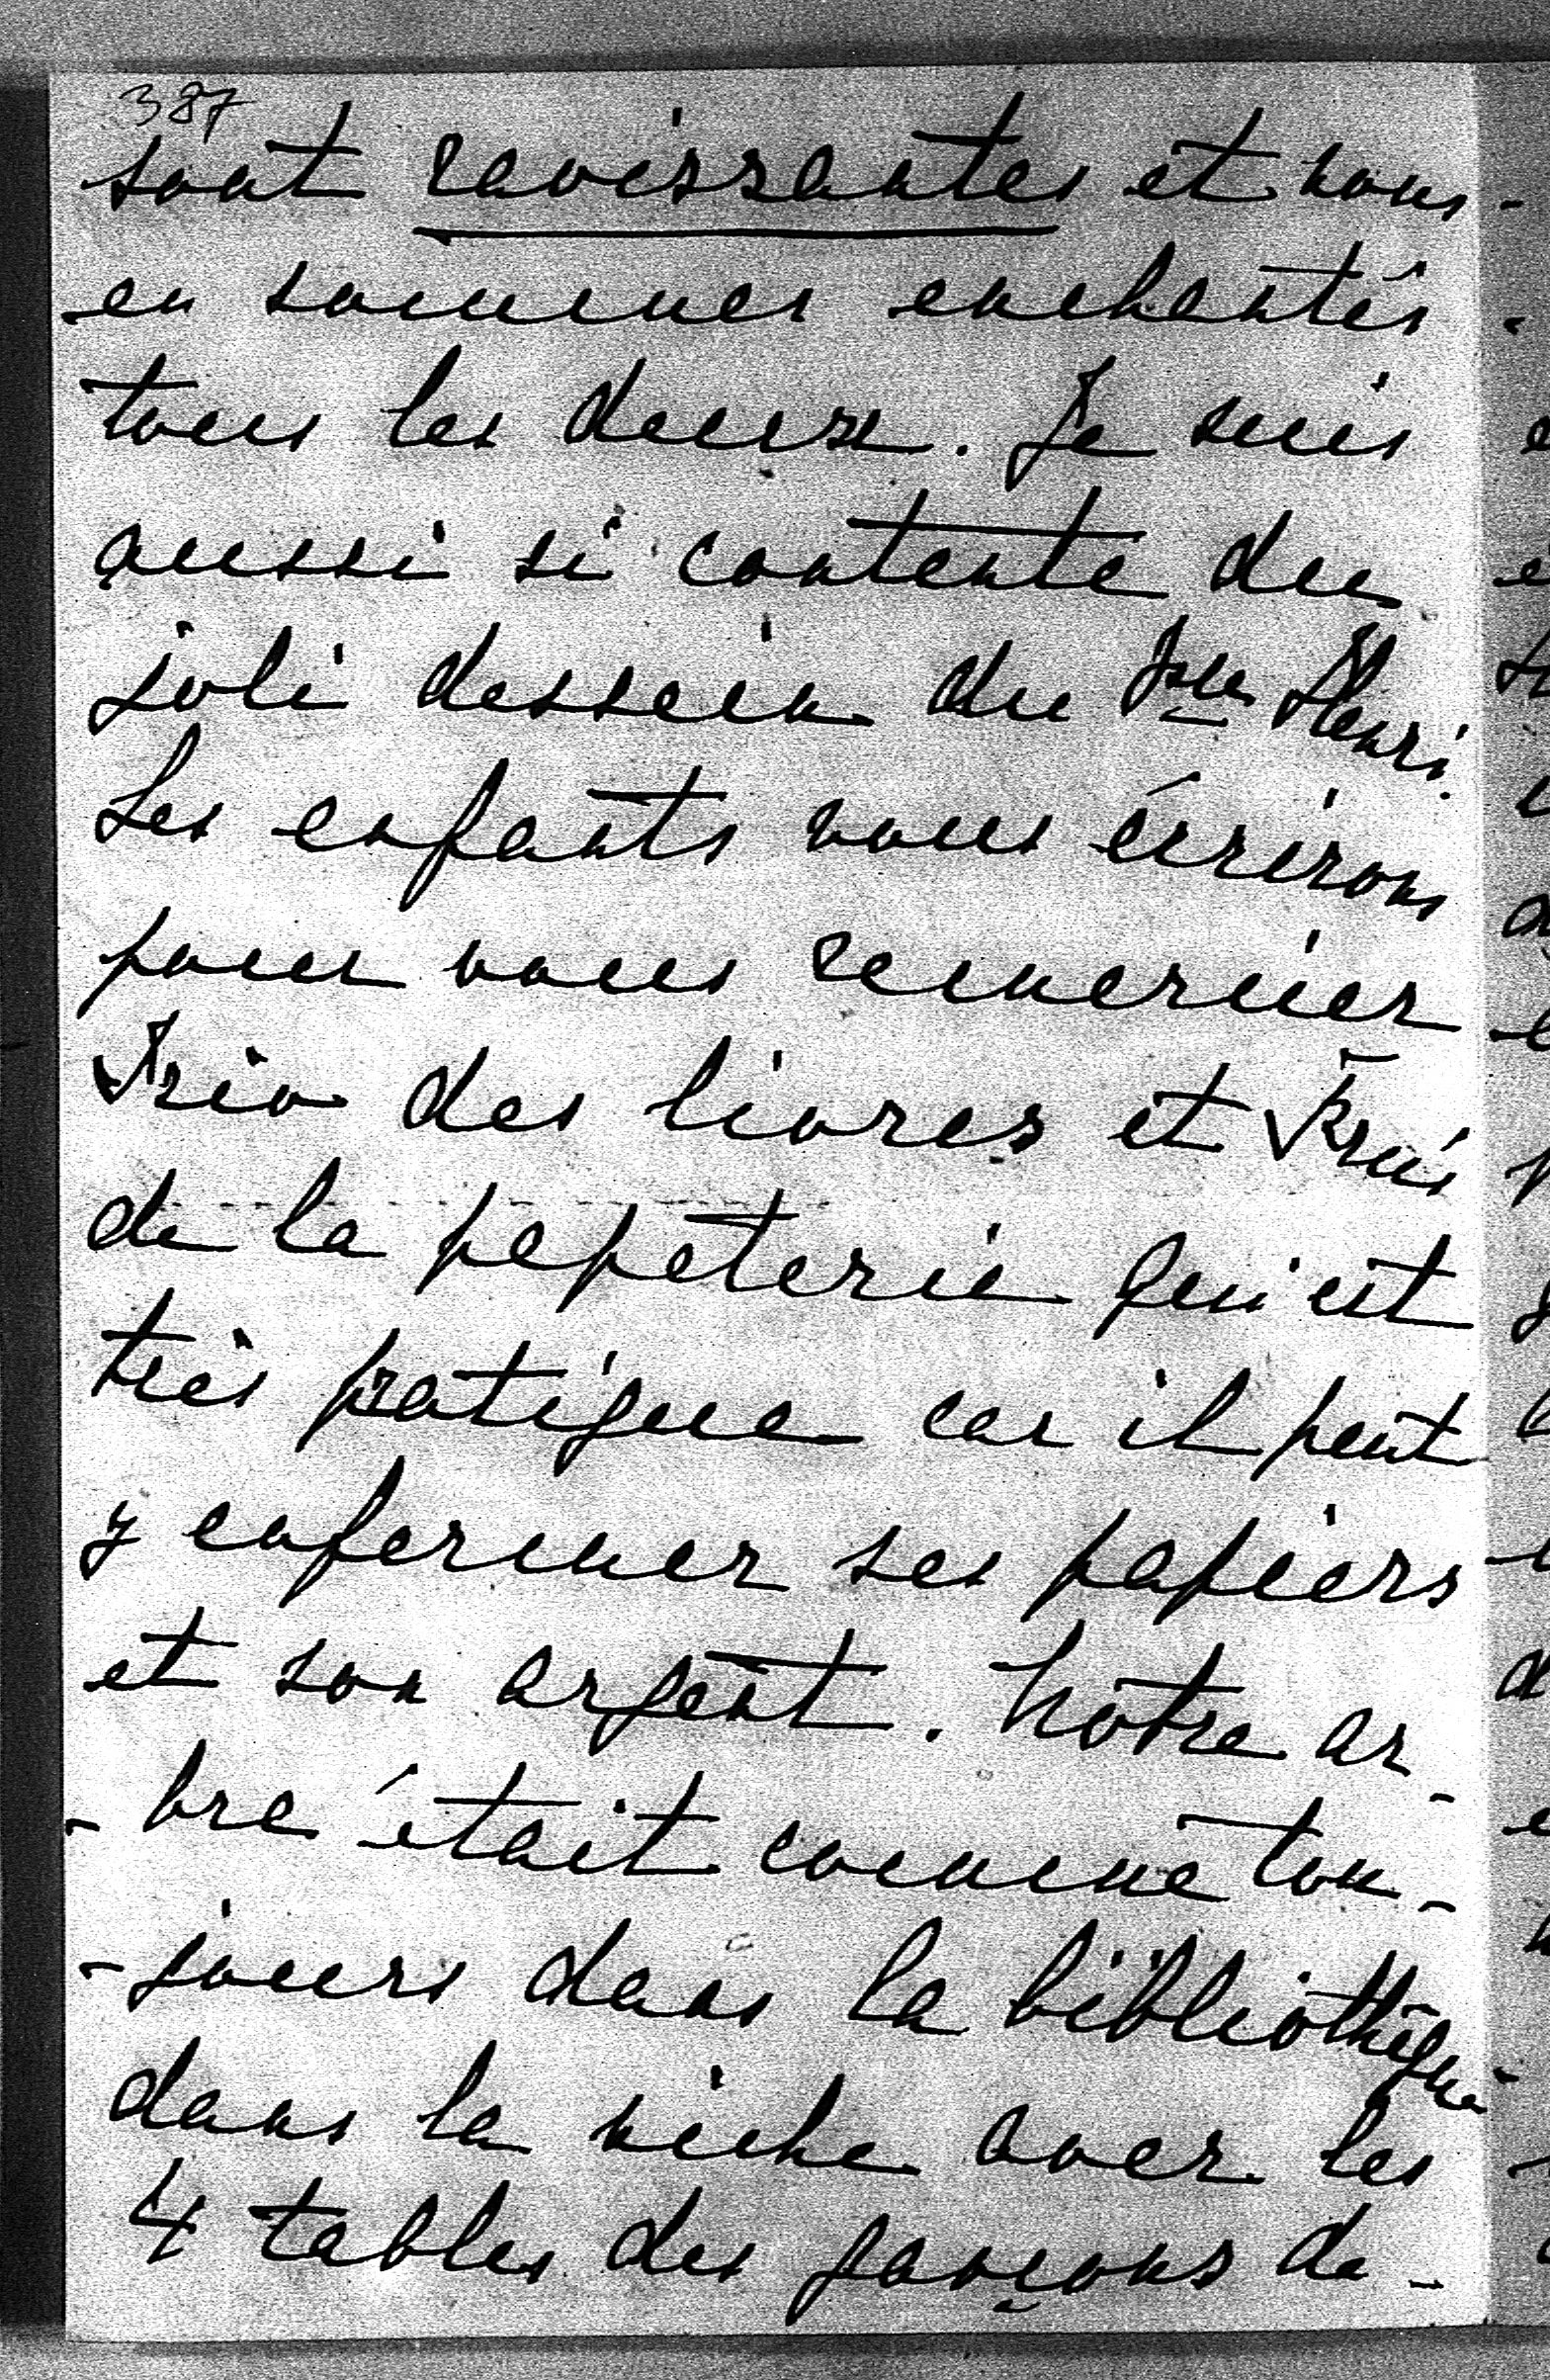 387
sont ravissantes et nous
en sommes enchantés
tous les deux. Je suis
aussi si contente du
joli dessein du Jne Henri.
Les enfants vous écrirons
pour vous remercier
des livres et
de la papeterie qui est
très pratique car il peut
y enfermer ses papiers
et son argent. Notre ar-
-bre était comme tou-
-jours dans la bibliothèque
dans la niche avec les
4 tables des garçons de-